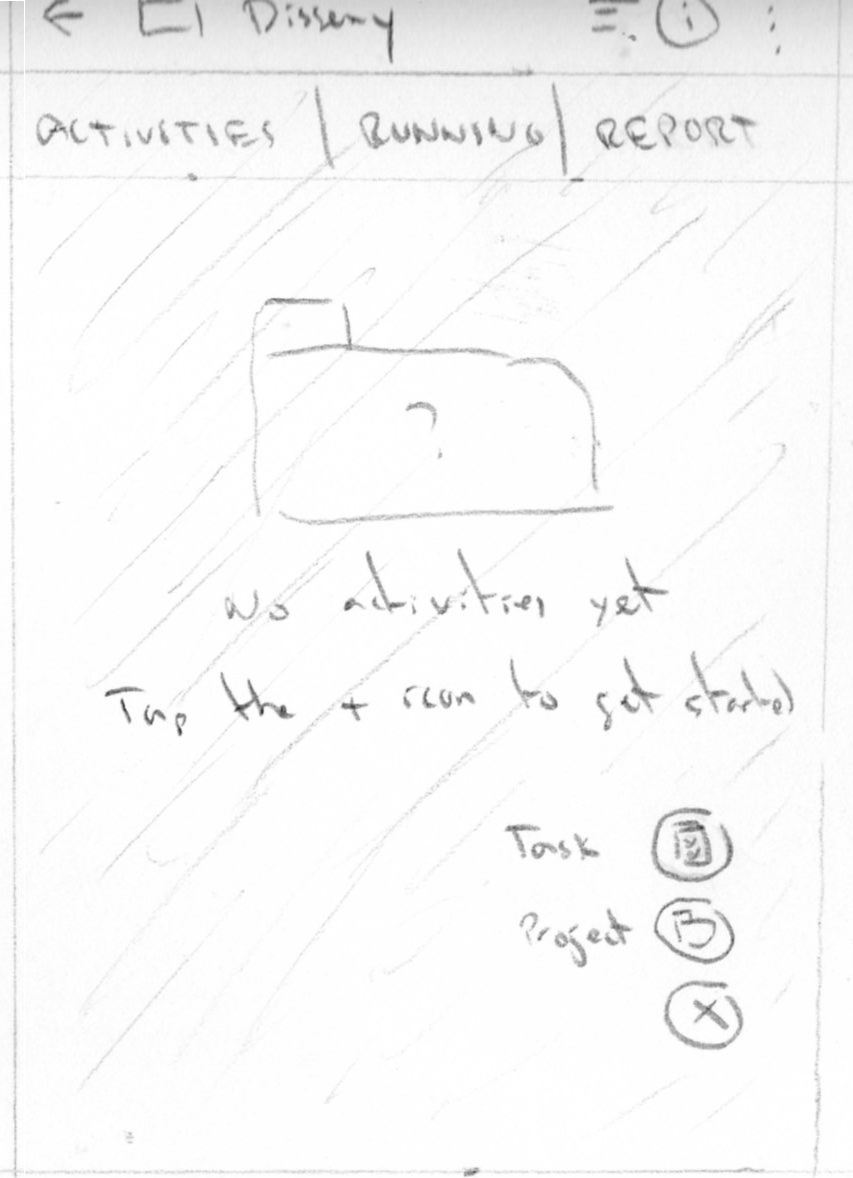 Disseny
ACTIVITIES | RUNNING | REPORT
?
No activities yet
Tap the + icon to get started
Task
Project